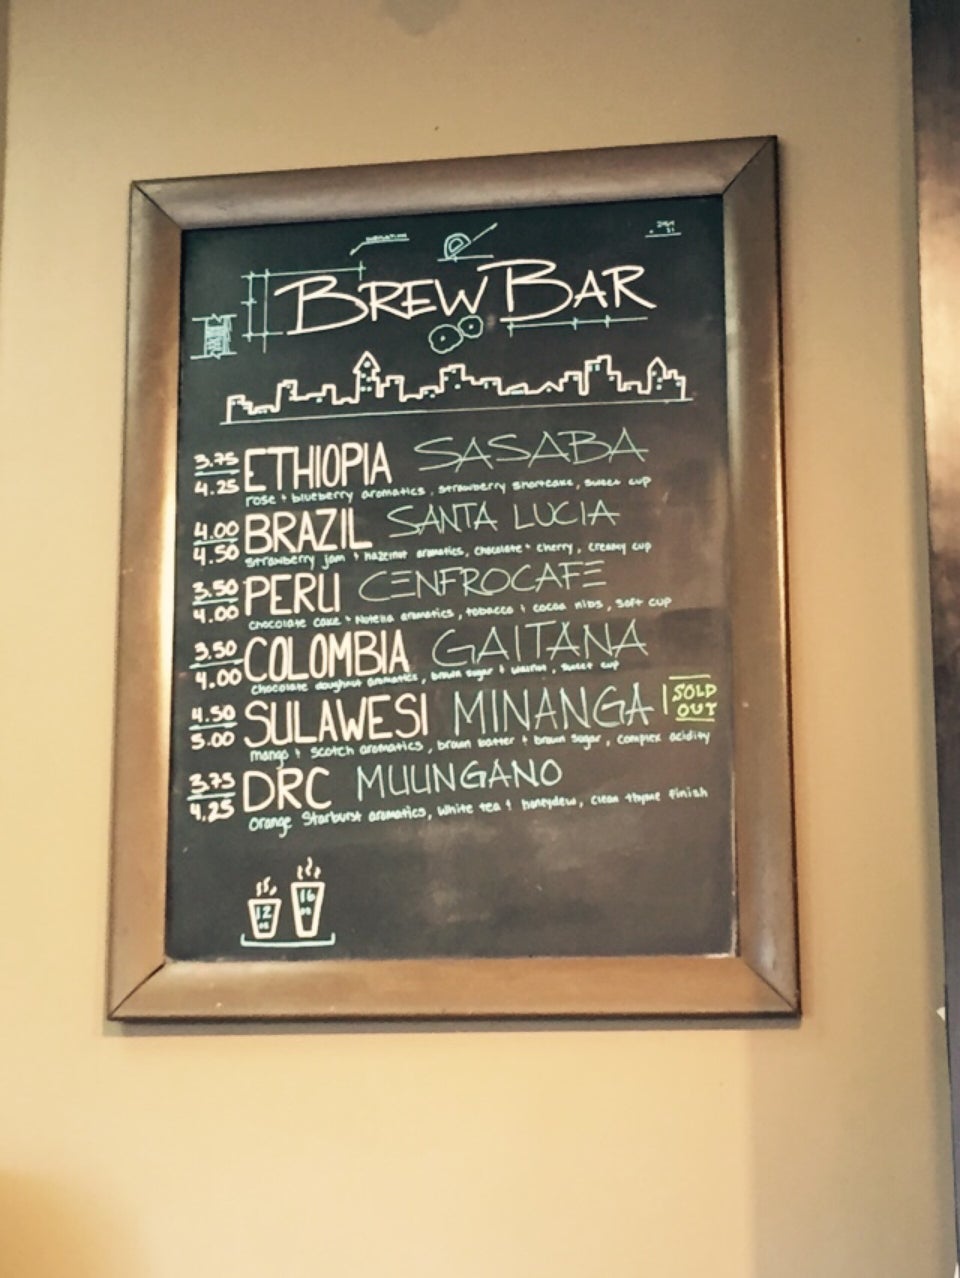 BREW BAR
3.75 ETHIOPIA SASABA
4.25 rose + blueberry aromatics, strawberry shortcake, sweet cup
4.00 BRAZIL SANTA LUCIA
4.50 strawberry jam + hazelnut aromatics, chocolate + cherry, creamy cup
3.50 PERU CENFROCAFE
4.00 chocolate cake + Nutella aromatics, tobacco + cocoa nibs, soft cup
3.50 COLOMBIA GAITANA
4.00 chocolate doughnut aromatics, brown sugar + walnut, sweet cup
4.50 SULAWESI MINANGA SOLD OUT
5.00 mango + scotch aromatics, brown butter + brown sugar, complex acidity
3.75 DRC MUUNGANO
4.25 Orange Starburst aromatics, white tea + honeydew, clean thyme finish
12 oz 16 oz